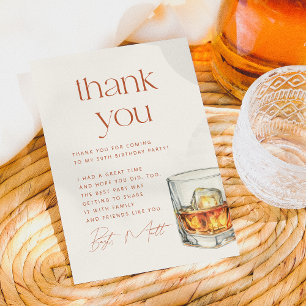 thank
you
THANK YOU FOR COMING
TO MY 50TH BIRTHDAY PARTY!
I HAD A GREAT TIME
AND HOPE YOU DID, TOO.
THE BEST PART WAS
GETTING TO SHARE
IT WITH FAMILY
AND FRIENDS LIKE YOU.
Best, Matt